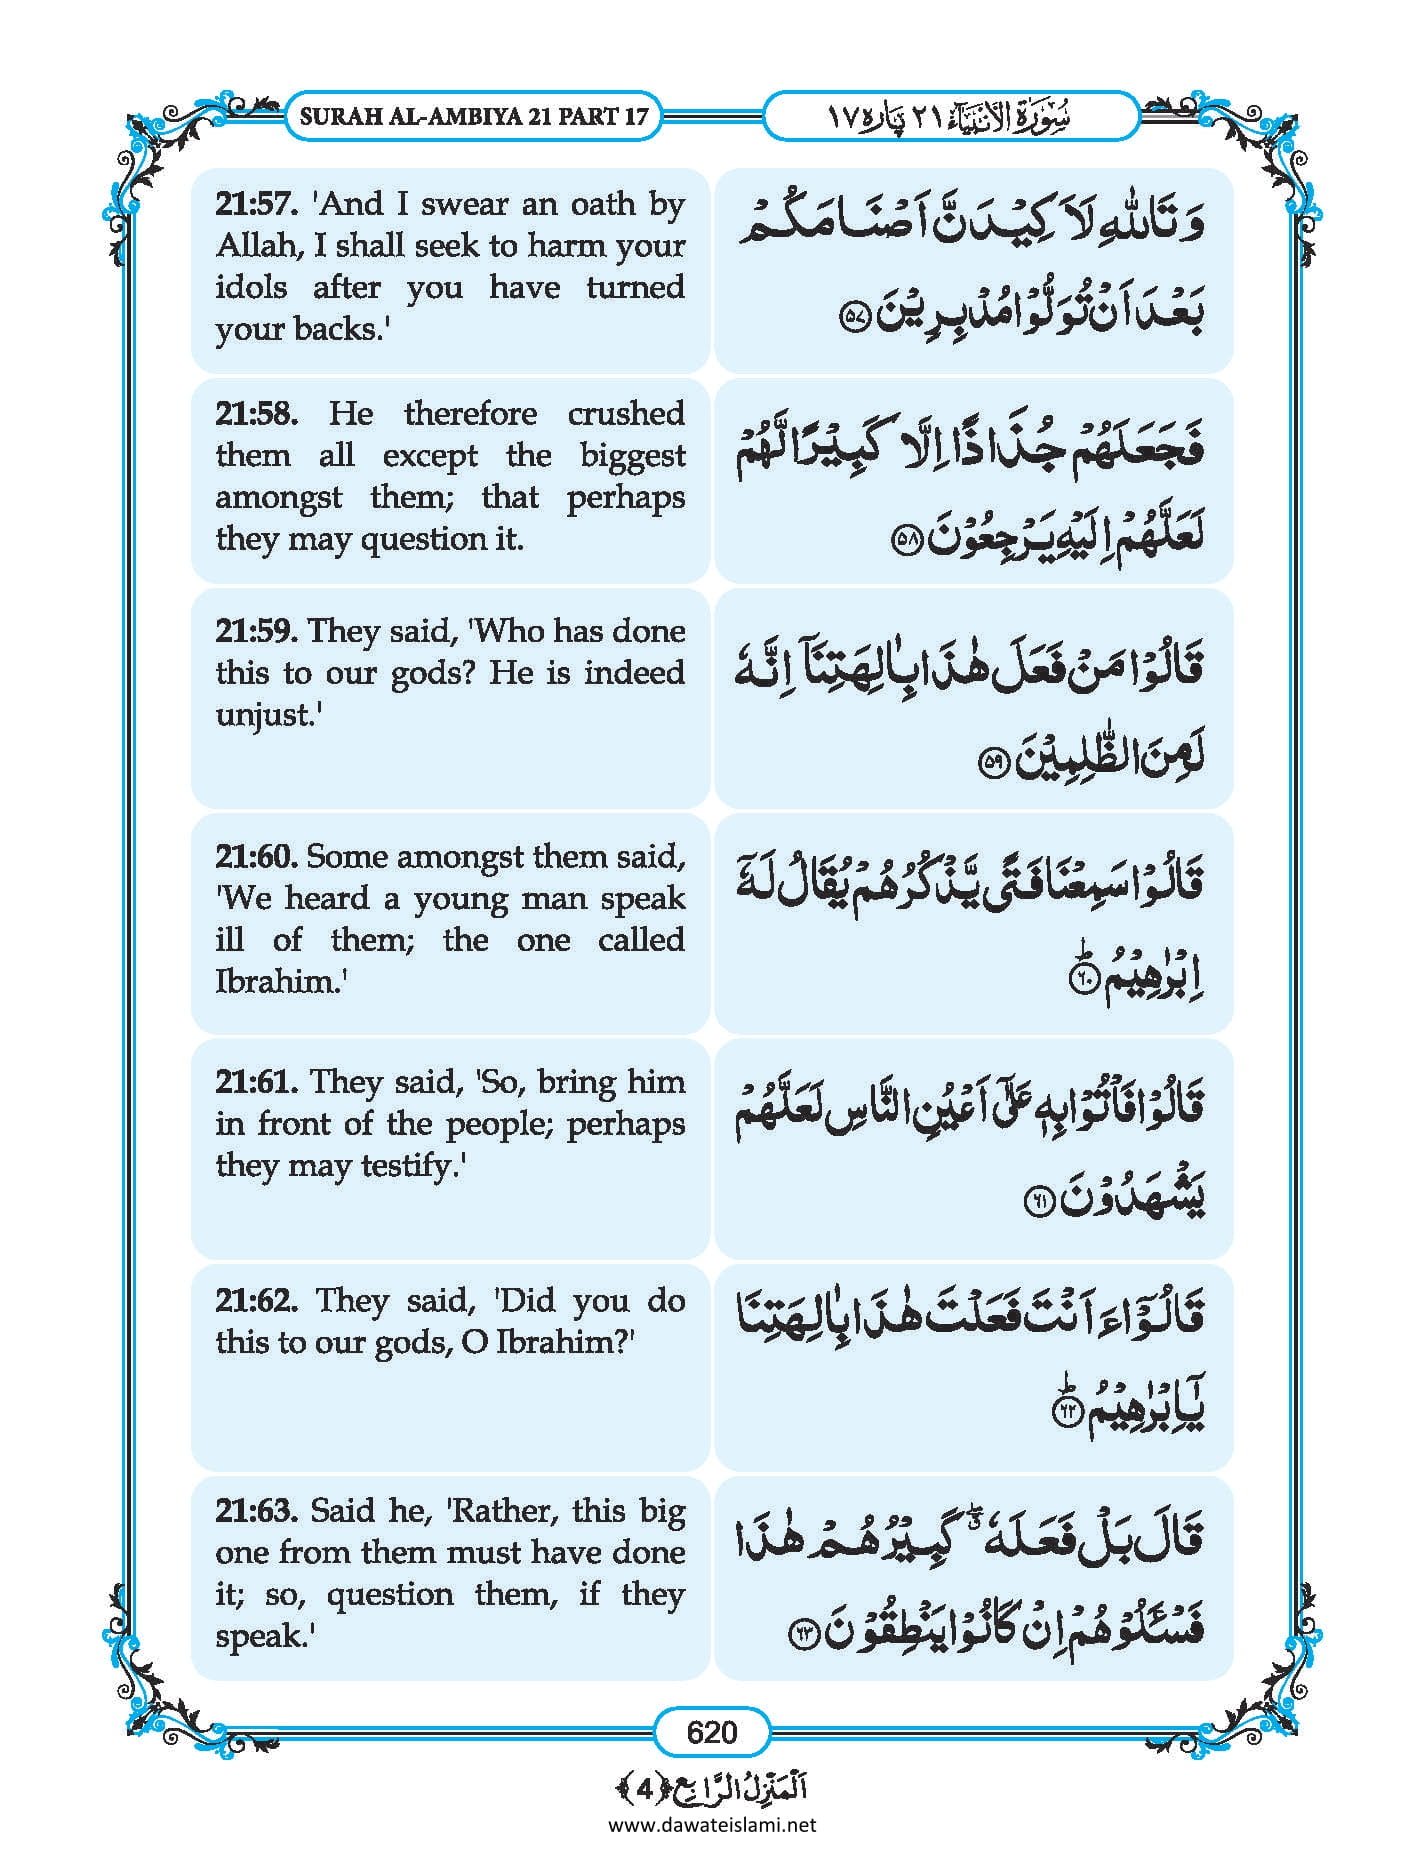 SURAH AL-AMBIYA 21 PART 17
سُوْرَةُ الْاَنْبِيَآء ٢١ پَارَہ ١٧
21:57. 'And I swear an oath by
Allah, I shall seek to harm your
idols after you have turned
your backs.'
وَ تَاللّٰهِ لَاَ كِیْدَنَّ اَصْنَامَكُمْ
بَعْدَ اَنْ تُوَلُّوْا مُدْبِرِیْنَ ﴿۵۷﴾
21:58. He therefore crushed
them all except the biggest
amongst them; that perhaps
they may question it.
فَجَعَلَهُمْ جُذٰذًا اِلَّا كَبِیْرًا لَّهُمْ
لَعَلَّهُمْ اِلَیْهِ یَرْجِعُوْنَ ﴿۵۸﴾
21:59. They said, 'Who has done
this to our gods? He is indeed
unjust.'
قَالُوْا مَنْ فَعَلَ هٰذَا بِاٰلِهَتِنَاۤ اِنَّهٗ
لَمِنَ الظّٰلِمِیْنَ ﴿۵۹﴾
21:60. Some amongst them said,
'We heard a young man speak
ill of them; the one called
Ibrahim.'
قَالُوْا سَمِعْنَا فَتًى یَّذْكُرُهُمْ یُقَالُ لَهٗۤ
اِبْرٰهِیْمُ ؕ﴿۶۰﴾
21:61. They said, 'So, bring him
in front of the people; perhaps
they may testify.'
قَالُوْا فَاْتُوْا بِهٖ عَلٰۤى اَعْیُنِ النَّاسِ لَعَلَّهُمْ
یَشْهَدُوْنَ ﴿۶۱﴾
21:62. They said, 'Did you do
this to our gods, O Ibrahim?'
قَالُوْۤا ءَاَنْتَ فَعَلْتَ هٰذَا بِاٰلِهَتِنَا
یٰۤاِبْرٰهِیْمُ ؕ﴿۶۲﴾
21:63. Said he, 'Rather, this big
one from them must have done
it; so, question them, if they
speak.'
قَالَ بَلْ فَعَلَهٗ ۖۗ كَبِیْرُهُمْ هٰذَا
فَسْـَٔلُوْهُمْ اِنْ كَانُوْا یَنْطِقُوْنَ ﴿۶۳﴾
620
اَلْمَنْزِلُ الرَّابِع ﴿4﴾
www.dawateislami.net